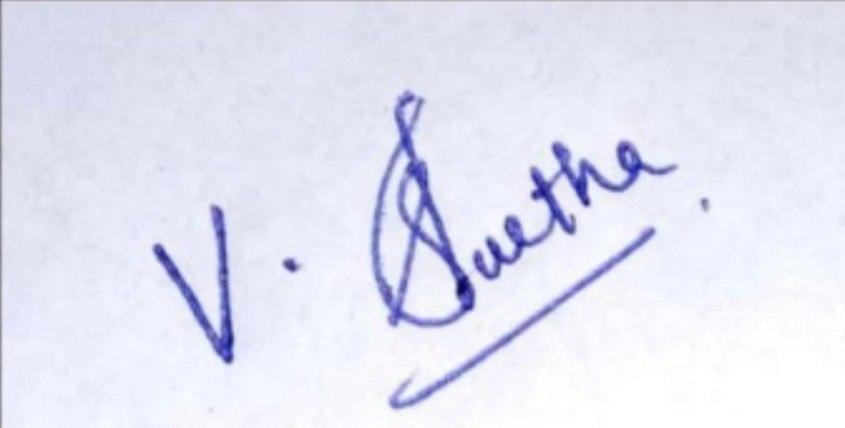 V. Swetha.